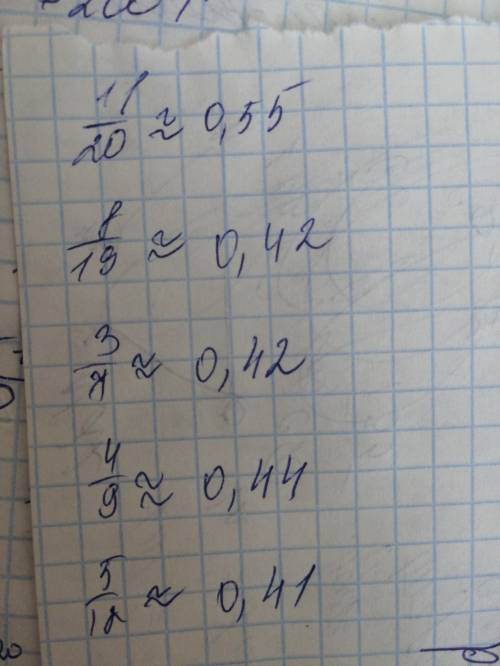 11/20 ≈ 0,55
8/19 ≈ 0,42
3/7 ≈ 0,42
4/9 ≈ 0,44
5/12 ≈ 0,41